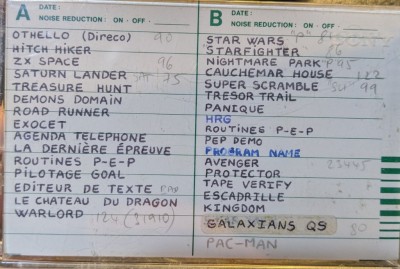 A DATE:
NOISE REDUCTION: ON · OFF ·
OTHELLO (Direco) 90
HITCH HIKER
ZX SPACE 96
SATURN LANDER 75
TREASURE HUNT
DEMONS DOMAIN
ROAD RUNNER
EXOCET
AGENDA TELEPHONE
LA DERNIÈRE ÉPREUVE
ROUTINES P-E-P
PILOTAGE GOAL
EDITEUR DE TEXTE
LE CHATEAU DU DRAGON
WARLORD
B DATE:
NOISE REDUCTION: ON · OFF ·
STAR WARS "P"
STARFIGHTER 86
NIGHTMARE PARK P95
CAUCHEMAR HOUSE 122
SUPER SCRAMBLE 99
TRESOR TRAIL
PANIQUE
HRG
ROUTINES P-E-P
PEP DEMO
PROGRAM NAME
AVENGER 23445
PROTECTOR
TAPE VERIFY
ESCADRILLE
KINGDOM
GALAXIANS QS 80
PAC-MAN